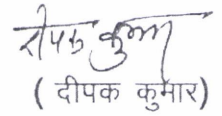 दीपक कुमार
( दीपक कुमार)